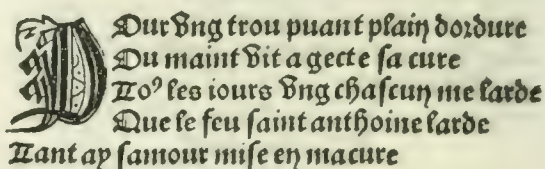 POur vng trou puant plain dordure
Ou maint vit a gecte ſa cure
Toꝰ les iours vng chaſcun me larde
Que le feu ſaint anthoine larde
Tant ay ſamour miſe en macure